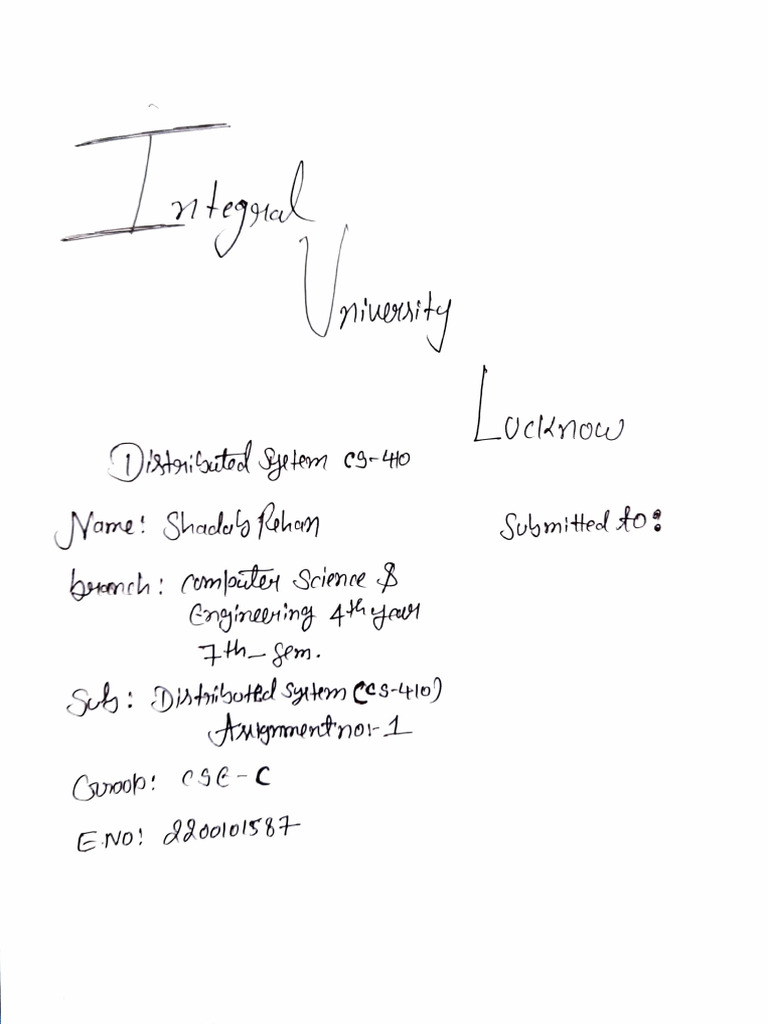 Integral
University
Lucknow
Distributed System CS-410
Name: Shadab Rehan
Submitted to:
branch: Computer Science &
Engineering 4th year
7th - Sem.
Sub: Distributed System (CS-410)
Assignment no:- 1
Group: CSE - C
E.NO: 2200101587